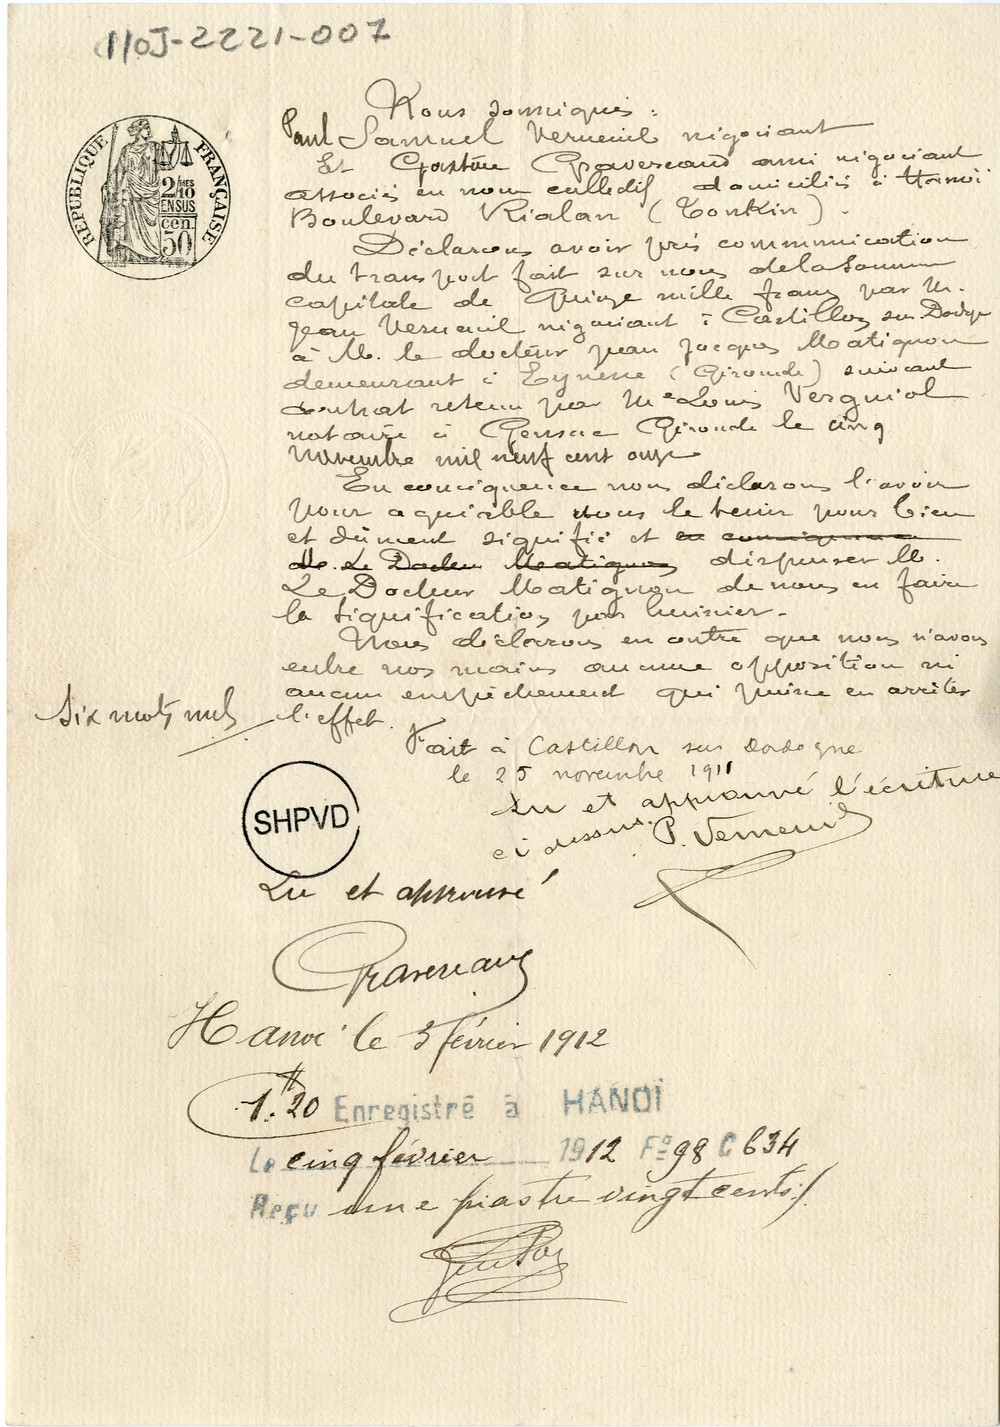 110J-2221-007
RÉPUBLIQUE FRANÇAISE
2/10MES
EN SUS
cen.
50
Nous soussignés :
Paul Samuel Verneuil négociant
Et Gaston Gravereaud ami négociant
associés en nom collectif domiciliés à Hanoï
Boulevard Rialan (Tonkin).
Déclarons avoir pris communication
du transport fait sur nous de la somme
capitale de Quinze mille francs par M.
Jean Verneuil négociant à Castillon sur Dordogne
à M. le docteur Jean Jacques Matignon
demeurant à Eynesse (Gironde) suivant
contrat retenu par Me Louis Vergniol
notaire à Gensac Gironde le cinq
novembre mil neuf cent onze
En conséquence nous déclarons l'avoir
pour agréable nous le tenir pour bien
et dûment signifié et en conséquence
de Le Docteur Matignon dispenser M.
Le Docteur Matignon de nous en faire
la signification par huissier.
Nous déclarons en outre que nous n'avons
entre nos mains aucune opposition ni
aucun empêchement qui puisse en arrêter
l'effet.
Six mots nuls
Fait à Castillon sur Dordogne
le 25 novembre 1911
Lu et approuvé l'écriture
ci dessus. P. Verneuil
SHPVD
Lu et approuvé
Gravereaud
Hanoi le 5 février 1912
1.20 Enregistré à HANOI
Le cinq février 1912 Fo 98 C 634
Reçu une piastre vingt cents